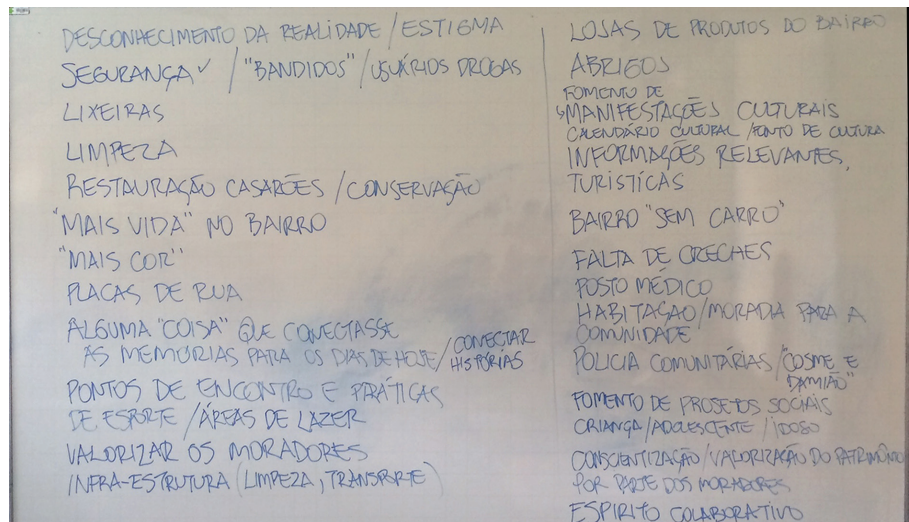 DESCONHECIMENTO DA REALIDADE / ESTIGMA
SEGURANÇA ✓ / "BANDIDOS" / USUÁRIOS DROGAS
LIXEIRAS
LIMPEZA
RESTAURAÇÃO CASARÕES / CONSERVAÇÃO
"MAIS VIDA" NO BAIRRO
"MAIS COR"
PLACAS DE RUA
ALGUMA "COISA" QUE CONECTASSE
AS MEMÓRIAS PARA OS DIAS DE HOJE / CONECTAR
HISTÓRIAS
PONTOS DE ENCONTRO E PRÁTICAS
DE ESPORTE / ÁREAS DE LAZER
VALORIZAR OS MORADORES
INFRA-ESTRUTURA (LIMPEZA, TRANSPORTE)
LOJAS DE PRODUTOS DO BAIRRO
ABRIGOS
FOMENTO DE
MANIFESTAÇÕES CULTURAIS
CALENDÁRIO CULTURAL / PONTO DE CULTURA
INFORMAÇÕES RELEVANTES,
TURISTÍCAS
BAIRRO "SEM CARRO"
FALTA DE CRECHES
POSTO MÉDICO
HABITAÇÃO / MORADIA PARA A
COMUNIDADE
POLICIA COMUNITÁRIAS / "COSME E
DAMIÃO"
FOMENTO DE PROJETOS SOCIAIS
CRIANÇA / ADOLESCENTE / IDOSO
CONSCIENTIZAÇÃO / VALORIZAÇÃO DO PATRIMÔNIO
POR PARTE DOS MORADORES
ESPIRITO COLABORATIVO